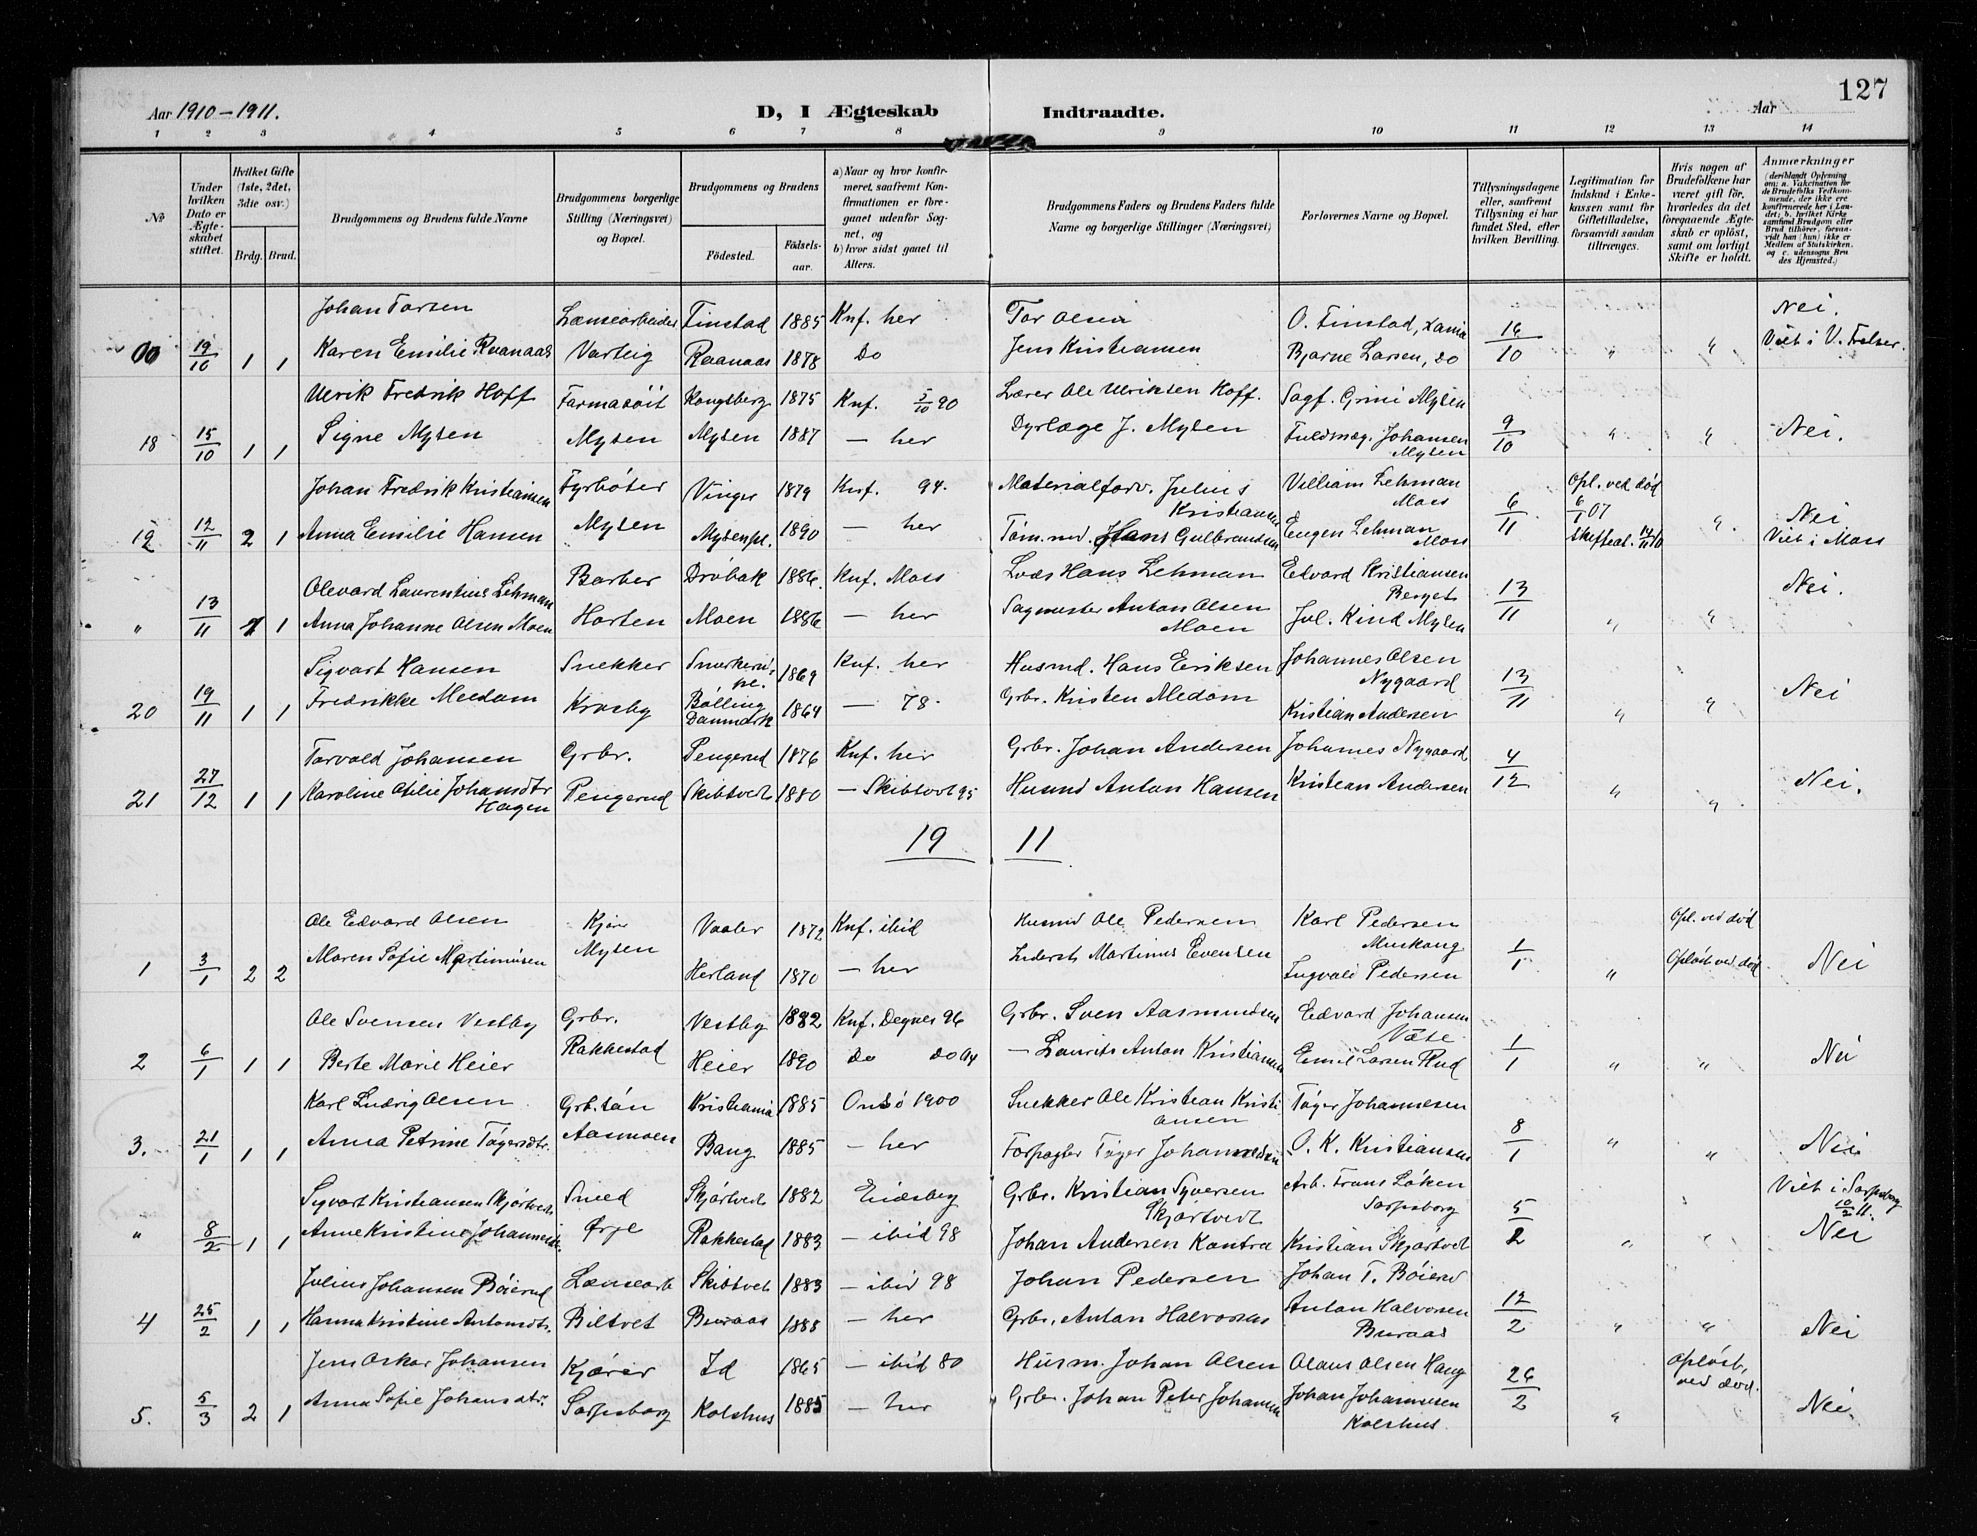 127
Aar 1910-1911. D, I Ægteskab Indtraadte. Aar
1 2 3 4 5 6 7 8 9 10 11 12 13 14
No
Under hvilken Dato er Ægteskabet stiftet.
Hvilket Gifte (1ste, 2det, 3die osv.)
Brdg. Brud.
Brudgommens og Brudens fulde Navne
Brudgommens borgerlige Stilling (Næringsvei) og Bopæl.
Brudgommens og Brudens
Fødested. Fødselsaar.
a) Naar og hvor konfirmeret, saafremt Konfirmationen er foregaaet udenfor Sognet, og
b) hvor sidst gaaet til Alters.
Brudgommens Faders og Brudens Faders fulde Navne og borgerlige Stillinger (Næringsvei)
Forlovernes Navne og Bopæl.
Tillysningsdagene eller, saafremt Tillysning ei har fundet Sted, efter hvilken Bevilling.
Legitimation for Indskud i Enkekassen samt for Giftetilladelse, forsaavidt saadan tiltrænges.
Hvis nogen af Brudefolkene har været gift før, hvorledes da det foregaaende Ægteskab er opløst, samt om lovligt Skifte er holdt.
Anmærkninger
(deriblandt Oplysning om: a. Vakcination for de Brudefolks Vedkommende, der ikke ere konfirmerede her i Landet; b. hvilket Kirkesamfund Brudgom eller Brud tilhører, forsaavidt han (hun) ikke er Medlem af Statskirken, og c. udensogns Brudes Hjemsted.)
Johan Torsen Lænsearbeider Finstad 1885 Knf. her Tor Olsen O. Finstad, Nei.
00 19/10 1 1 Karen Emilie Raanaas Varteig Raanaas 1878 Do Jens Kristiansen Bjarne Larsen, do 16/10 " " Viet i V.
Ulrik Fredrik Hoff Farmasöit Kongsberg 1875 Knf. 5/10 90 Lærer Ole Ulriksen Hoff. Sagf. Grini Mysen
18 15/10 1 1 Signe Mysen Mysen Mysen 1887 — her Dyrlæge J. Mysen Fuldmæg. Johansen Mysen 9/10 " " Nei.
Johan Fredrik Kristiansen Fyrböter Vinger 1879 Knf. 94. Materialforv. Julius Kristiansen Villiam Lehman Moss Opl. ved död 6/1 07
19 12/11 2 1 Anna Emilie Hansen Mysen Mysenpl. 1890 — her Töm.md. Hans Gulbrandsen Eugen Lehman Moss 6/11 Skifteat. " Nei Viet i Moss
Olevard Laurentius Lehman Barber Dröbak 1886. Knf. Moss Lods Hans Lehman Edvard Kristiansen Berget Nei.
" 13/11 1 1 Anna Johanne Olsen Moen Horten Moen 1886 — her Sagmester Anton Olsen Moen Jul. Kind Mysen 13/11 " "
Sigvart Hansen Snekker 1869 Knf. her Husmd. Hans Eriksen Johannes Olsen Nygaard
20 19/11 1 1 Fredrikke Medom Krosby Bölling Danmark 1864 — 78. Grbr. Kristen Medom Kristian Andersen 13/11 " " Nei
Torvald Johansen Grbr. Pengerud 1876 Knf. her Grbr. Johan Andersen Johannes Nygaard
21 27/12 1 1 Karoline Otilie Johansdtr Hagen Pengerud Skibtvedt 1880 — Skibtvet 95 Husmd Anton Hansen Kristian Andersen 4/12 " " Nei.
19 11
Ole Edvard Olsen Kjörer Vaaler 1872 Knf. ibid Husmd Ole Pedersen Karl Pedersen Opl. ved död
1 3/1 2 2 Maren Sofie Martinusen Mysen Herland 1870 — her Martinus Evensen Ingvald Pedersen 1/1 " Oplöst ved död Nei
Ole Svensen Vestby Grbr. Vestby 1882 Knf. Degnes 96 Grbr. Sven Aasmundsen Edvard Johansen
2 6/1 1 1 Berte Marie Heier Rakkestad Heier 1890 Do Do 04 — Laurits Anton Kristiansen Emil Larsen Rud 1/1 " " Nei
Karl Ludvig Olsen Grb.sön Kristiania 1885 Onsö 1900 Snekker Ole Kristian Kristiansen Töger Johannesen
3. 21/1 1 1 Anna Petrine Tögersdtr. Aasmoen Bang 1885 — her Forpagter Töger Johannesen O. K. Kristiansen 8/1 " " Nei
Sigvart Kristiansen Skjörtvedt Smed Skjörtvedt 1882 Eidsberg Grbr. Kristian Syversen Skjörtvedt Arb. Frans Löken Sarpsborg Viet i Sarpsborg 10/2 11.
" 8/2 1 1 Anne Kristine Johannesdtr. Ørje Rakkestad 1883 — ibid 98 Johan Andersen Kantra Kristian Skjörtvedt 5/2 " " Nei
Julius Johansen Böierud Lænsearb Skibtvet 1883 — ibid 98 Johan Pedersen Johan T. Böierud
4 25/2 1 1 Hanna Kristine Antonsdtr. Biltvet Buraas 1888 — her Grbr. Anton Halvorsen Anton Halvorsen Buraas 12/2 " " Nei
Jens Oskar Johansen Kjörer Id 1865 — ibid 80 Husm. Johan Olsen Olaus Olsen Haug Oplöst ved död.
5. 5/3 2 1 Anna Sofie Johansdtr. Sarpsborg Kolshus 1885 — her Grbr. Johan Peter Johansen Johan Johannesen Kolshus 26/2 " Nei